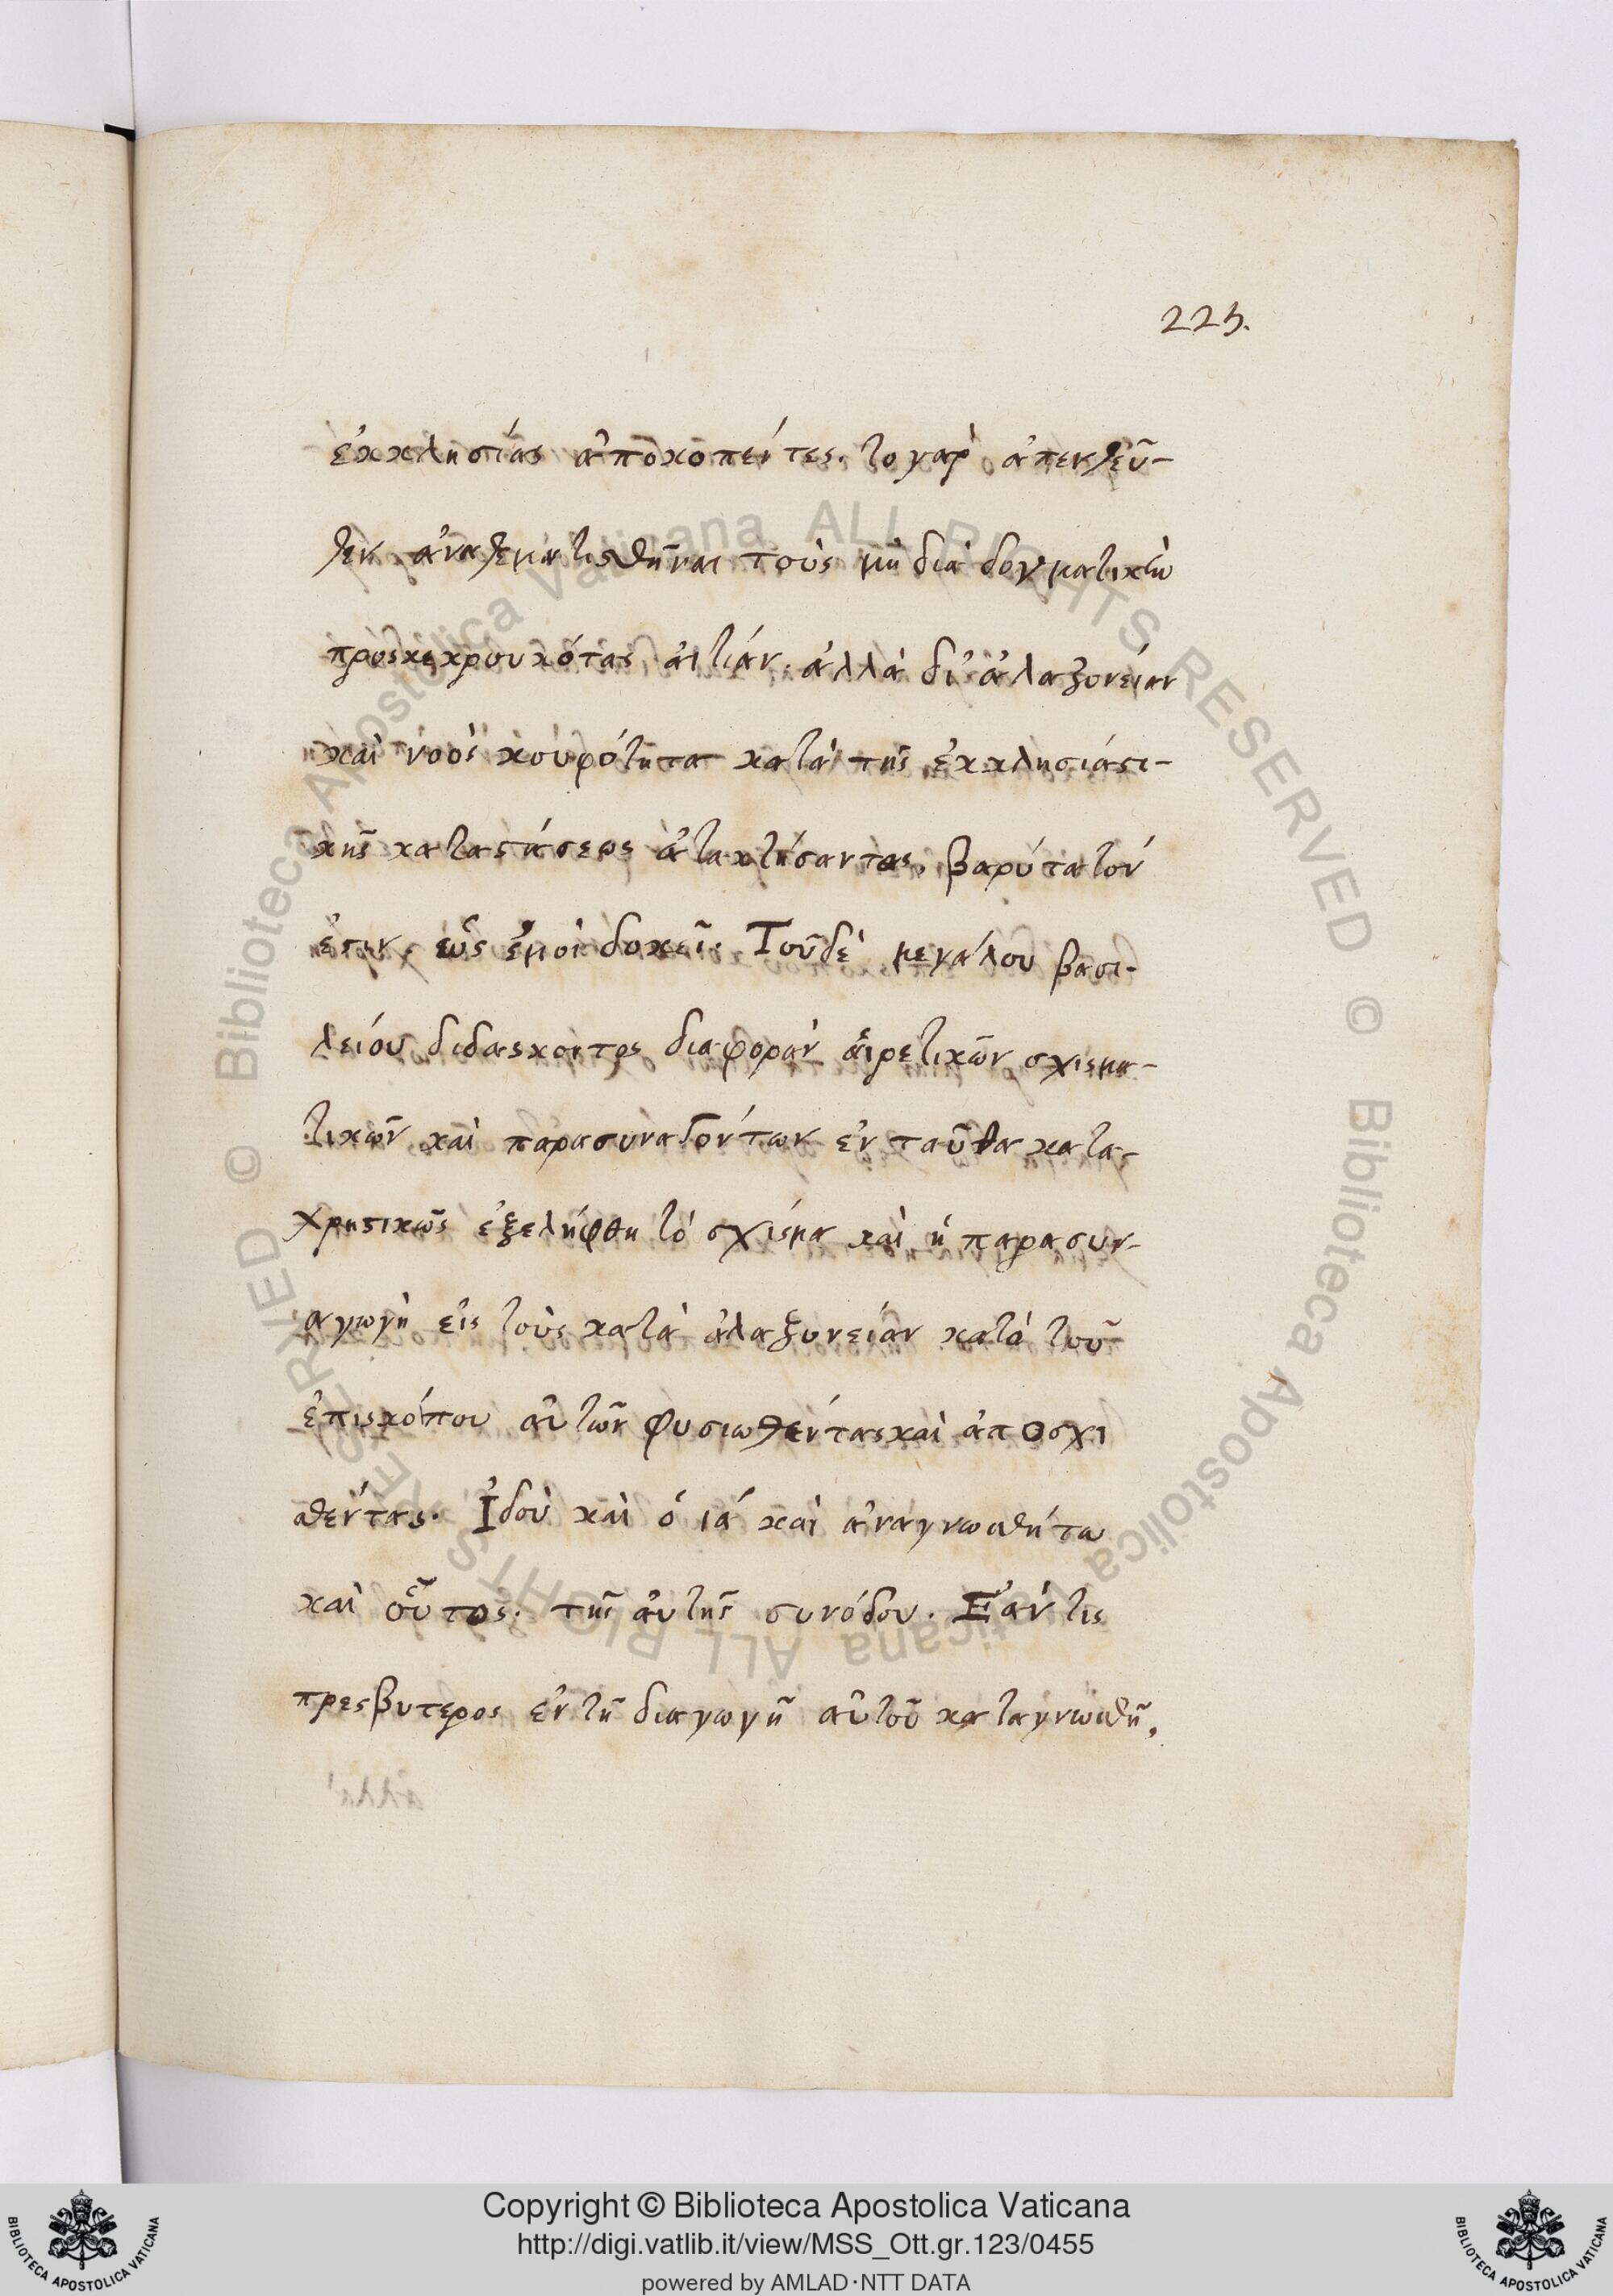 223.
ἐκκλησίας ἀποκοπέντες. το γαρ̀ ἀπεντεῦ-
θεν ἀναθεματισθῆναι τοὺς μὴ διὰ δογματικὴν
προσκεκρουκότας αἰτίαν. ἀλλὰ δι᾽ ἀλαζονείαν
καὶ νοὸς κουφότητα κατὰ τῆς ἐκκλησιαστι-
κῆς καταστάσεως ἀτακτήσαντας, βαρύτατόν
ἐστιν, ὡς ἐμοὶ δοκεῖ. Τοῦδὲ μεγάλου βασι-
λείου διδασκοντος διαφορὰν αἱρετικῶν σχισμα-
τικῶν καὶ παρασυναγόντων ἐν ταῦθα κατα-
χρηστικῶς ἐξελήφθη τό σχίσμα καὶ ἡ παρασυν-
αγωγὴ εἰς τοὺς κατὰ ἀλαζονείαν κατὰ τοῦ
ἐπισκόπου αὐτῶν φυσιωθέντας καὶ ἀποσχι
σθέντας. Ἰδοὺ καὶ ὁ ιά καὶ ἀναγνωσθήτω
καὶ οὗτος. τῆς αὐτῆς συνόδου. Ἐάν τις
πρεσβυτερος ἐν τῇ διαγωγῇ αὐτοῦ καταγνωσθῇ,
Copyright © Biblioteca Apostolica Vaticana
http://digi.vatlib.it/view/MSS_Ott.gr.123/0455
powered by AMLAD·NTT DATA
BIBLIOTECA APOSTOLICA VATICANA
BIBLIOTECA APOSTOLICA VATICANA
© Biblioteca Apostolica Vaticana ALL RIGHTS RESERVED © Biblioteca Apostolica Vaticana ALL RIGHTS RESERVED